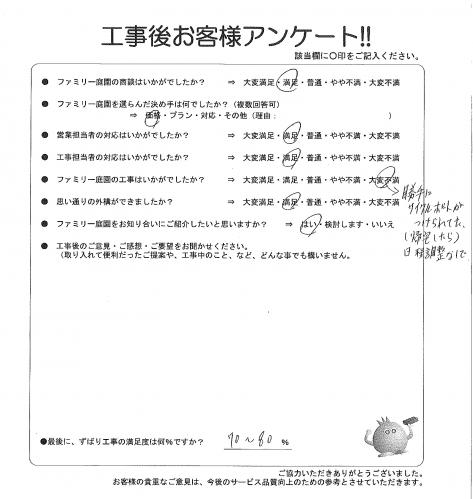 工事後お客様アンケート!!
該当欄に〇印をご記入ください。
● ファミリー庭園の商談はいかがでしたか？ ⇒ 大変満足・満足・普通・やや不満・大変不満
● ファミリー庭園を選らんだ決め手は何でしたか？（複数回答可）
⇒ 価格・プラン・対応・その他（理由： ）
● 営業担当者の対応はいかがでしたか？ ⇒ 大変満足・満足・普通・やや不満・大変不満
● 工事担当者の対応はいかがでしたか？ ⇒ 大変満足・満足・普通・やや不満・大変不満
● ファミリー庭園の工事はいかがでしたか？ ⇒ 大変満足・満足・普通・やや不満・大変不満
勝手に
サイクルポートが
つけられてた
(帰宅したら)
日程調整なしで
● 思い通りの外構ができましたか？ ⇒ 大変満足・満足・普通・やや不満・大変不満
● ファミリー庭園をお知り合いにご紹介したいと思いますか？ ⇒ はい・検討します・いいえ
● 工事後のご意見・ご感想・ご要望をお聞かせください。
（取り入れて便利だったご提案や、工事中のこと、など、どんな事でも構いません。
●最後に、ずばり工事の満足度は何％ですか？ 70～80 ％
ご協力いただきありがとうございました。
お客様の貴重なご意見は、今後のサービス品質向上のための参考とさせていただきます。